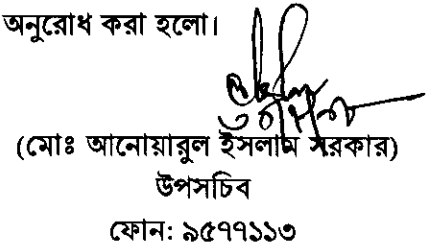 অনুরোধ করা হলো।
(মোঃ আনোয়ারুল ইসলাম সরকার)
উপসচিব
ফোন: ৯৫৭৭১১৩